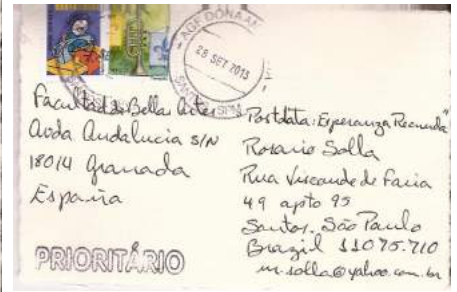 AGF DONA AN
28 SET 2013
SPM
Facultad de Bellas Artes
Avda Andalucia S/N
18014 Granada
España
PRIORITÁRIO
Postdata: Esperanza Recuerda"
Rosario Solla
Rua Visconde de Faria
49 apto 95
Santos. São Paulo
Brazil 11075.710
m.solla@yahoo.com.br